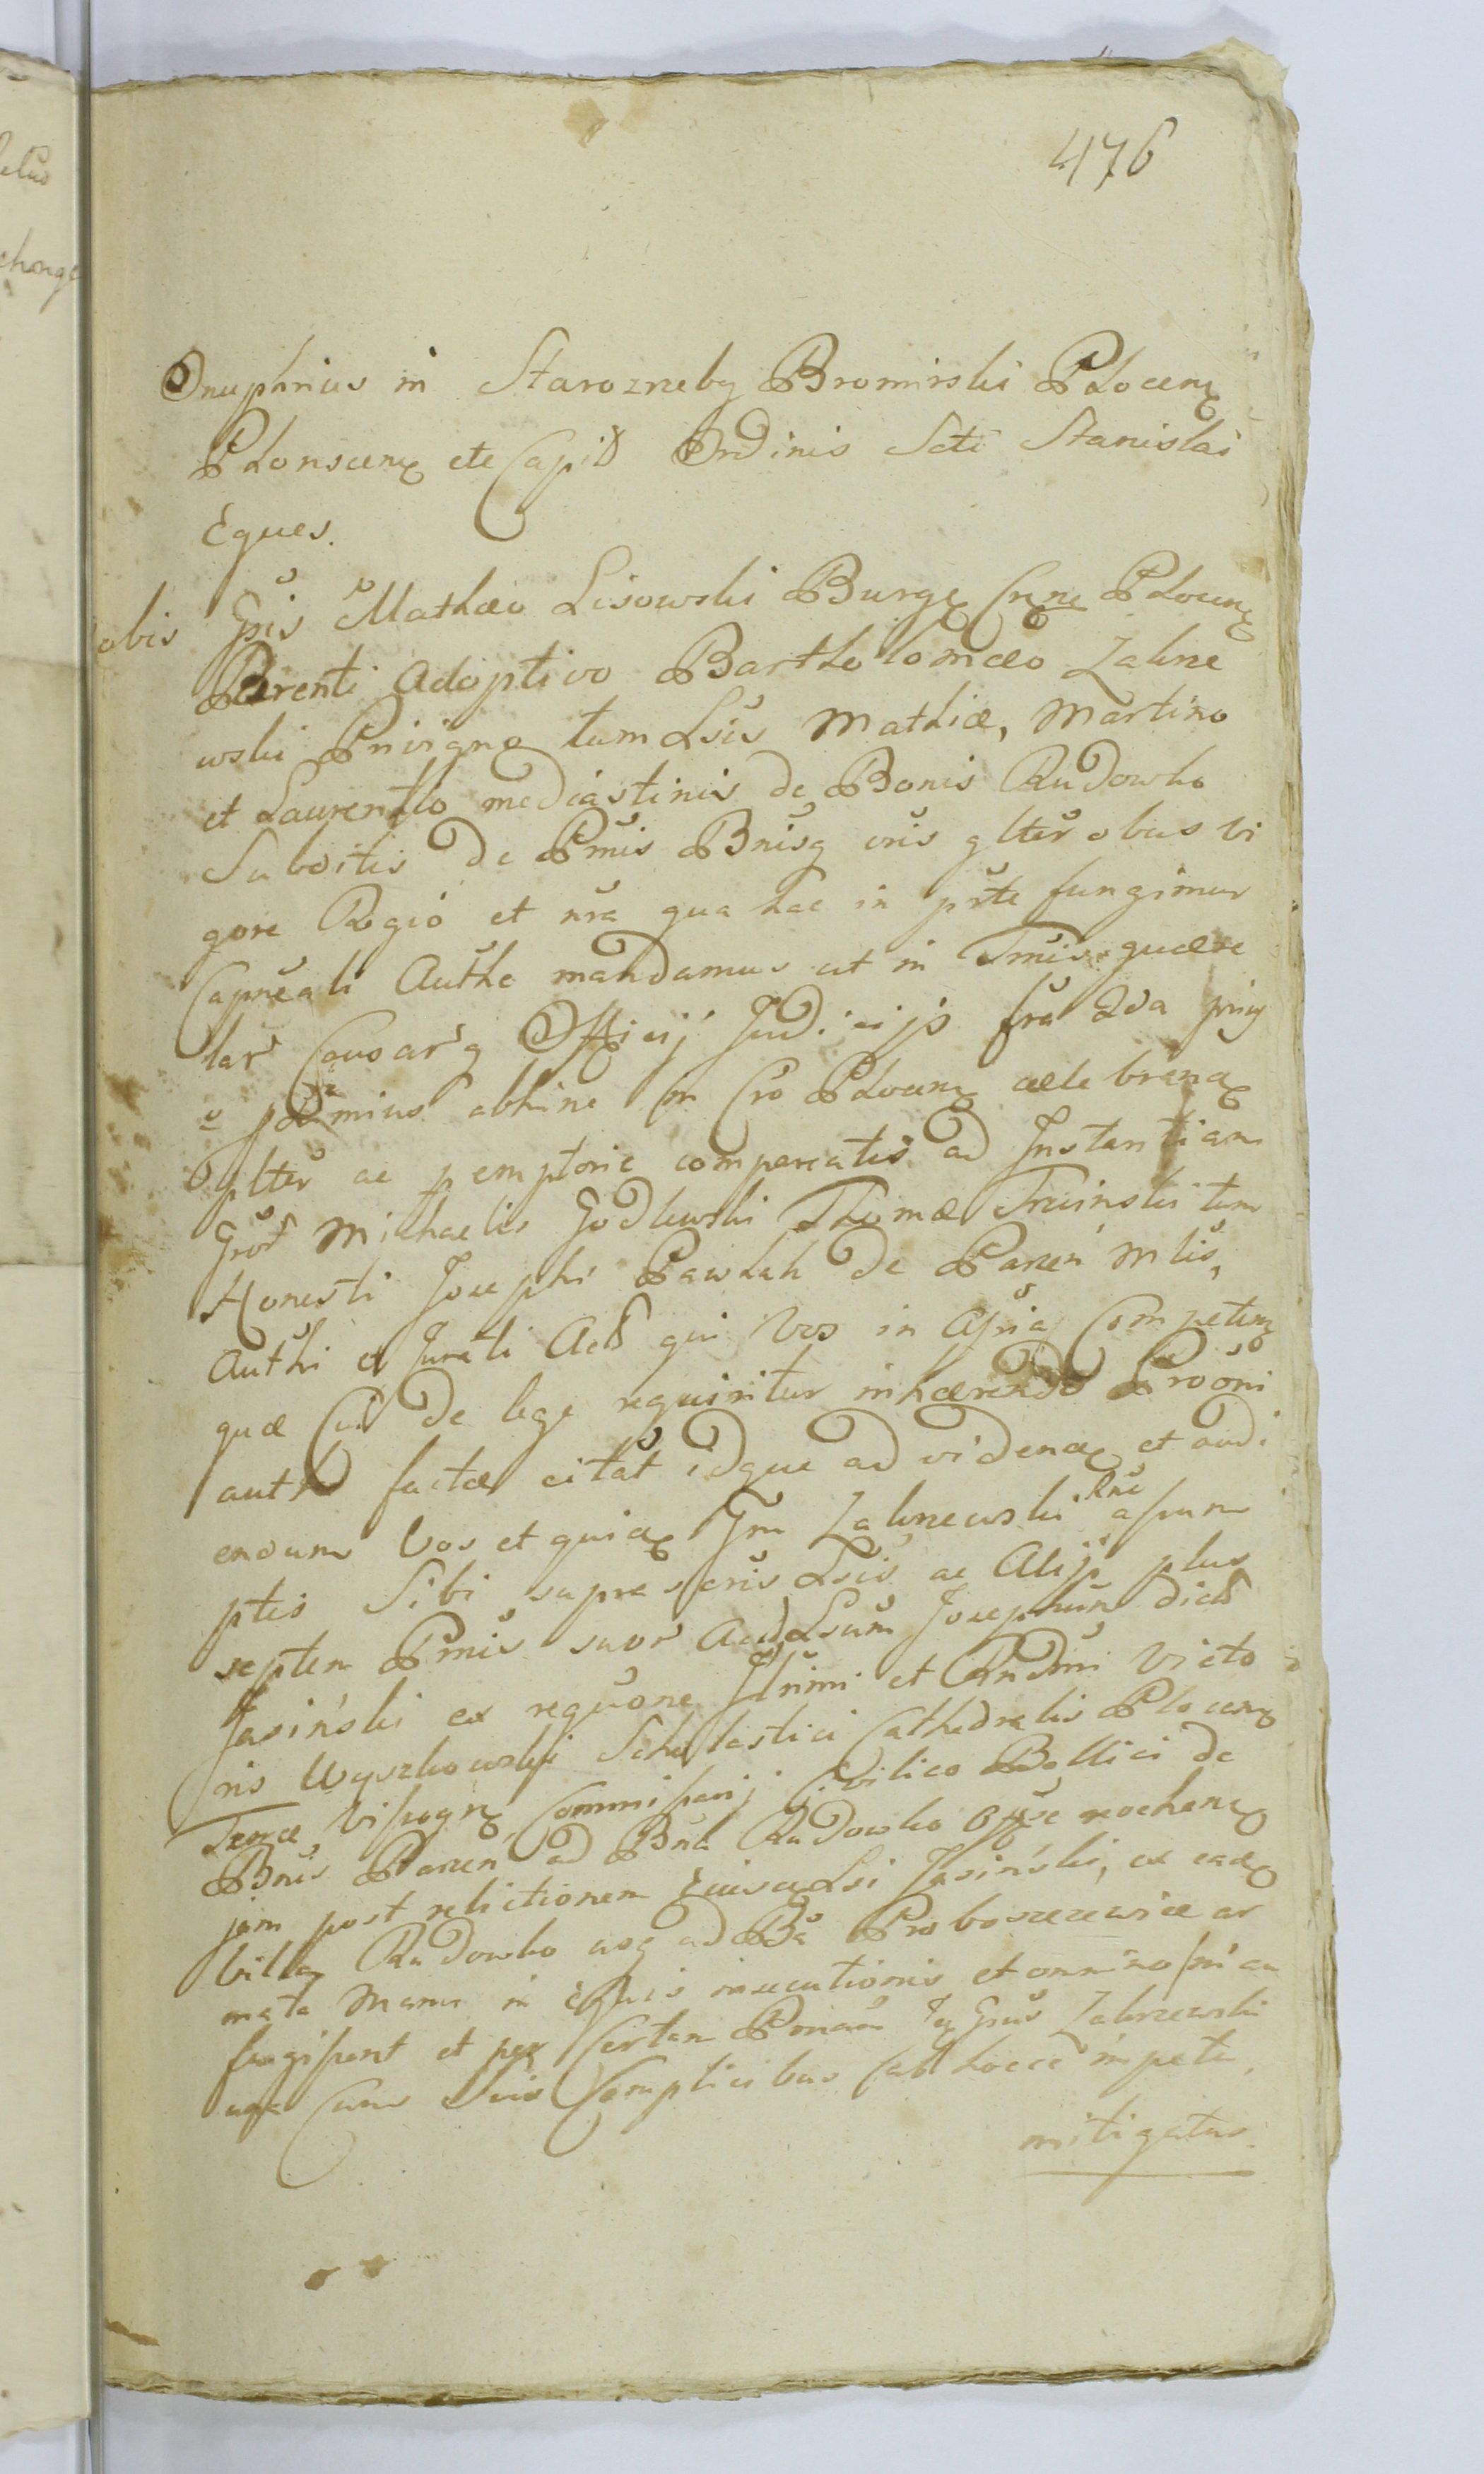 476
Onuphrius in Starozreby Bromirski Płocen
Płonscen etc Capit Ordinis Scti Stanislai
Eques.
obis Gñis Mathæo Lisowski Burg Crne Płocen
Parenti Adoptivo Bartholomæo Zakrze
wski Privigno tum Lsis Mathiæ, Martino
et Laurentio mediastinis de Bonis Rudowko
Subditis de Pmis Bnisq vris glter obus vi
gore Regio et nra qua hac in prte fungimur
Capneali Authe mandamus ut in Tmis quære
lar Causarq Officij Judicijs fra 2da
proxmius abhinc in Cro Płocen celebran
plter ac pemptorie compareatis ad Instantiam
Grod Michaelis Godlewski Thomæ Trcinski tum
Honesti Josephi Pawlak de Parzen Mlis,
Authi et Jurati Act qui Vos in Apria Competen
quæ Cui de lege requiritur inhærendo Proõni
auth factæ citat idque ad viden et audi
endum Vos et quia Gm Zakrzewski assum
ptis Sibi supra scris Lsis ac Alijs plus
septem Pmis suor Ad Lsum Josephum dict
Jasiński ex requõne Illrimi et Rndmi Victo
ris Wyszkowski Scholastici Cathedralis Płocen
Terræ Vissogr Commissarij Civilico Bellici de
Bnis Parzen ad Bna Rudowko
jam post relictionem Lsi Jasiński, ex ead
villa Rudowko usq ad Ba Proboszczewice ar
mata Manu in Equis insecutionis et omnino
fregissent et per Certam Gnus Zakrzewski
una Cum Suis Complicibus sub hocce impetu,
mitigatus.